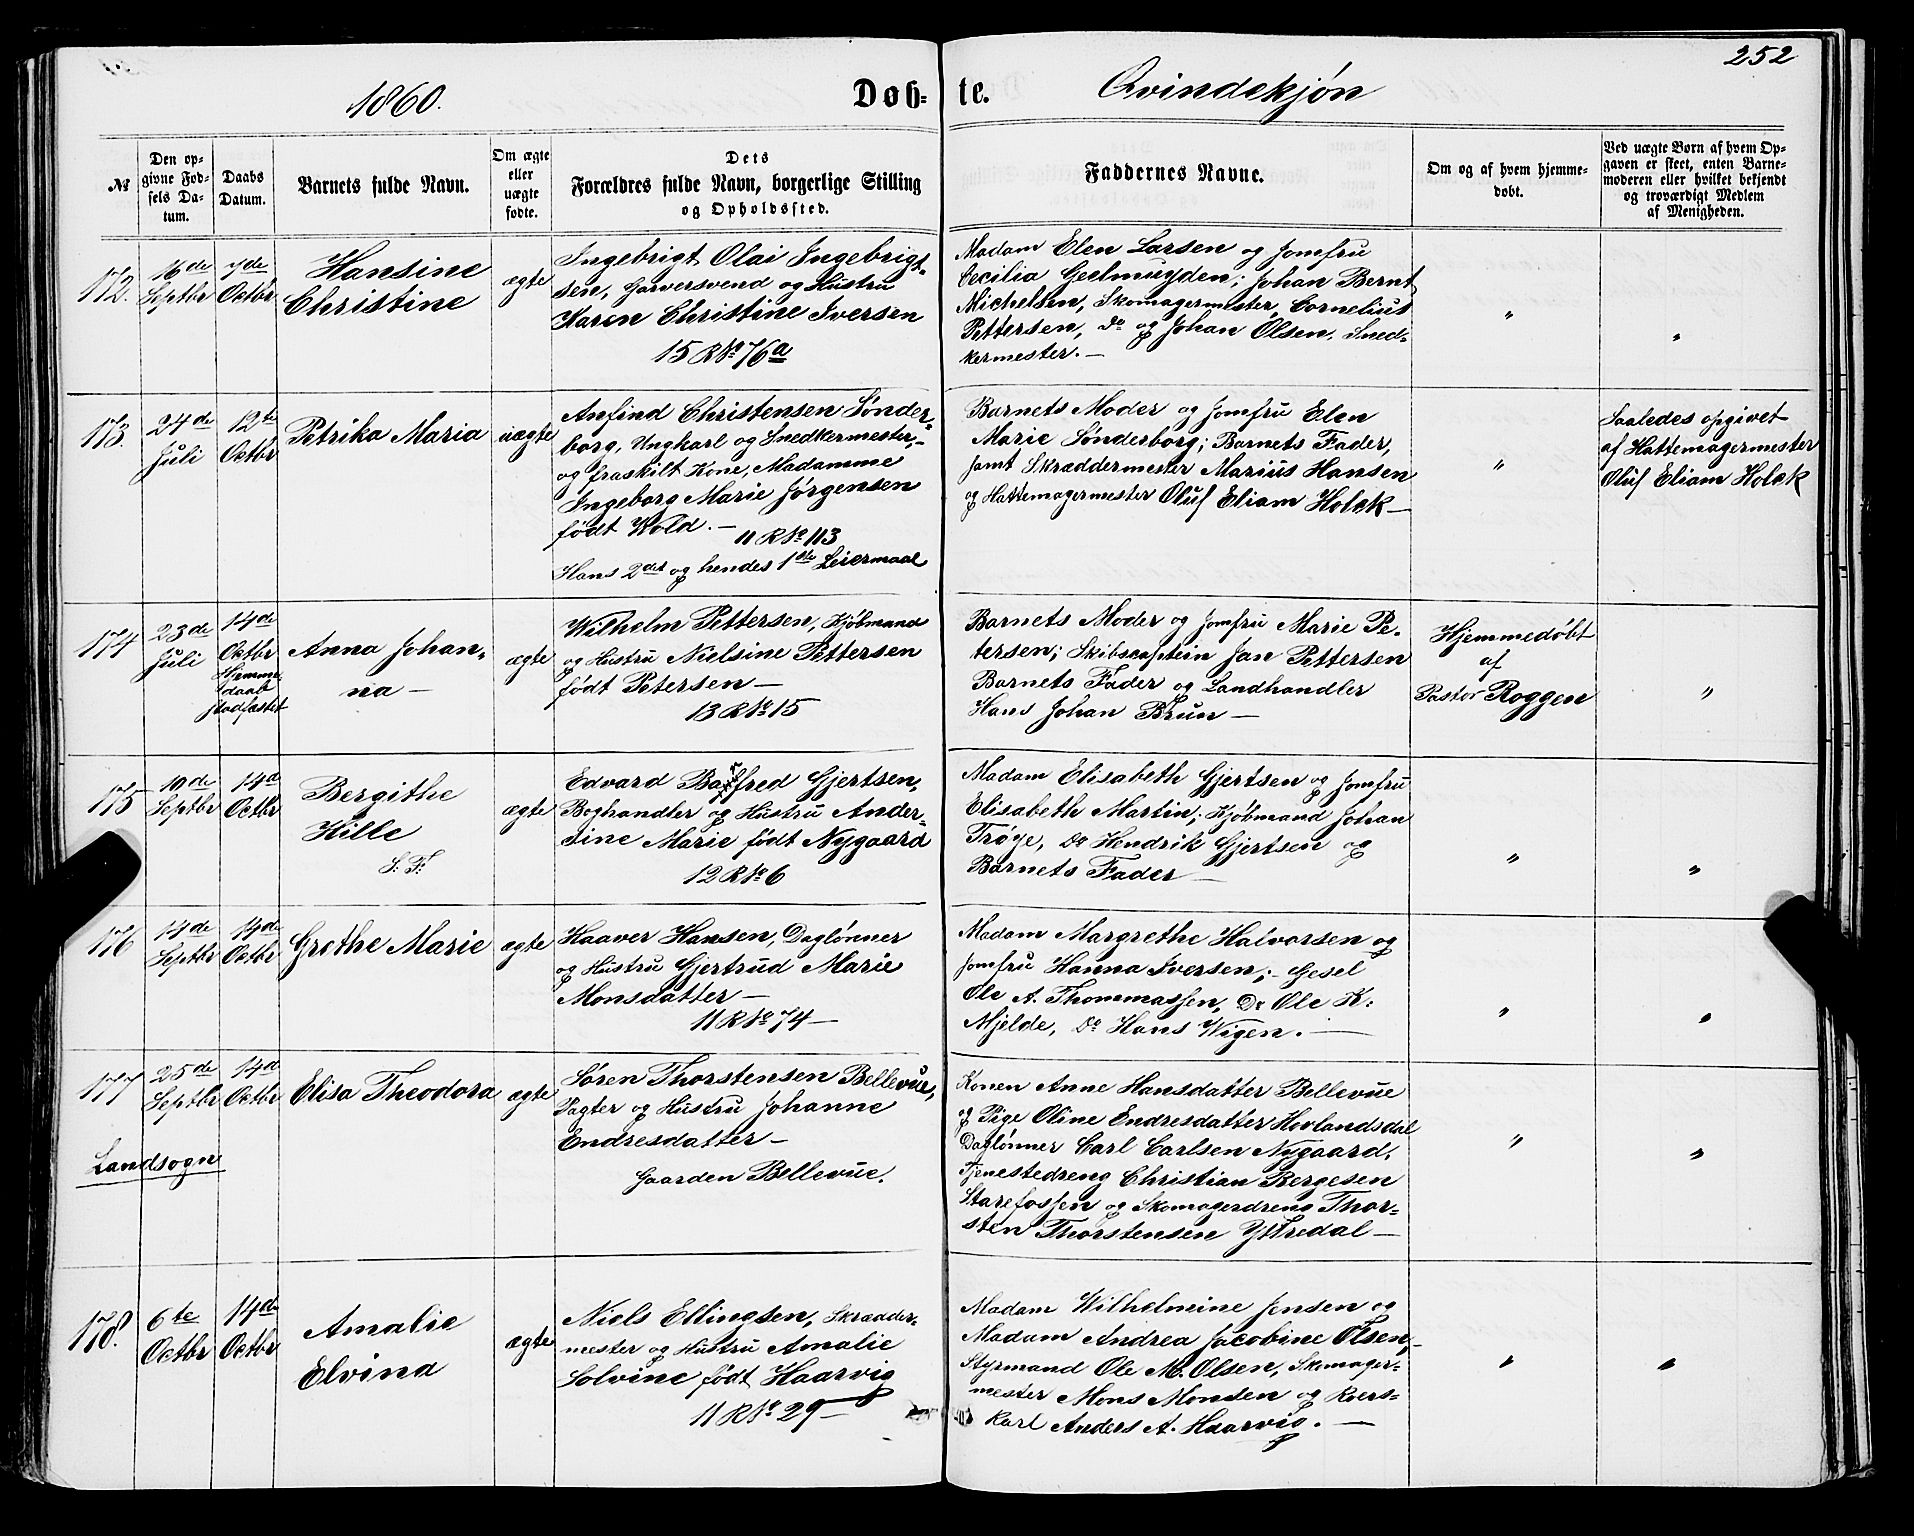 252
1860. Døb- te. Qvindekjøn
№
Den opgivne Fødsels Datum.
Daabs Datum.
Barnets fulde Navn.
Om ægte eller uægte fødte.
Dets Forældres fulde Navn, borgerlige Stilling og Opholdssted.
Faddernes Navne.
Om og af hvem hjemmedøbt.
Ved uægte Børn af hvem Opgaven er skeet, enten Barnemoderen eller hvilket bekjendt og troværdigt Medlem af Menigheden.
172.
16de Septbr
7de Octbr
Hansine
Christine
ægte
Ingebrigt Olai Ingebrigt-
sen, Garversvend og Hustru
Karen Christine Iversen
15 R No 76a
Madam Elen Larsen og Jomfru
Cecilia Geelmuyden; Johan Bernt
Michelsen, Skomagermester, Cornelius
Pettersen, Do og Johan Olsen, Sned-
kermester. —
"
"
173.
24de Juli
12te Octbr
Petrika Maria
uægte
Anfind Christensen Sønder-
borg, Ungkarl og Snedkermester,
og fraskilt Kone, Madamme
Ingeborg Marie Jørgensen
født Wold. —
11 R No 113
Hans 2det og hendes 1ste Leiermaal
Barnets Moder og Jomfru Elen
Marie Sønderborg; Barnets Fader,
samt Skræddermester Marius Hansen
og Hattemagermester Oluf Eliam Holck —
"
Saaledes opgivet
af Hattemagermester
Oluf Eliam Holck
174
23de Juli
14de
Octbr
Hjemme
daab
stadfæstet
Anna Johan-
na —
ægte
Wilhelm Pettersen, Kjøbmand
og Hustru Nielsine Pettersen
født Petersen —
13 R No 15
Barnets Moder og Jomfru Marie Pe-
tersen; Skibscaptein Jan Pettersen
Barnets Fader og Landhandler
Hans Johan Brun —
Hjemmedøbt
af
Pastor Roggen
"
175
19de Septbr
14d Octbr
Bergithe
Hille
S. F.
ægte
Edvard Ba fred Gjertsen,
Boghandler og Hustru Ander-
sine Marie født Nygaard
12 R No 6
Madam Elisabeth Gjertsen og Jomfru
Elisabeth Martin; Kjøbmand Johan
Trøye, Do Hendrik Gjertsen og
Barnets Fader —
"
"
176
14de Septbr
14de Octbr
Grethe Marie
ægte
Haaver Hansen, Daglønner
og Hustru Gjertrud Marie
Monsdatter —
11 R No 74 —
Madam Margrethe Halvorsen og
Jomfru Hanna Iversen; Gesel
Ole A. Thommassen, Do Ole K:
Mjelde, Do Hans Wigen. —
"
"
177
25de Septbr
14d Octbr
Elisa Theodora
ægte
Søren Thorstensen Bellevue,
Pagter og Hustru Johanne
Endresdatter —
Gaarden Bellevue.
Landsogn
Konen Anne Hansdatter Bellevue
og Pige Oline Endresdatter Hovlandsdal
Daglønner Carl Carlsen Nygaard,
Tjenestedreng Christian Bergesen
Starefossen og Skomagerdreng Thor-
sten Thorstensen Yttredal —
"
"
178.
6te Octbr
14de Octbr
Amalie
Elvina
ægte
Niels Ellingsen, Skrædder-
mester og Hustru Amalie
Solvine født Haarvig
11 R No 29 —
Madam Wilhelmine Jensen og
Madam Andrea Jacobine Olsen,
Styrmand Ole M. Olsen, Skomager-
mester Mons Monsen og Kvers-
karl Anders A. Haarvig. —
"
"